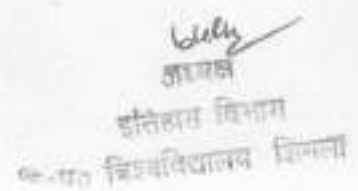 अध्यक्ष
इतिहास विभाग
हि.प्र. विश्वविद्यालय शिमला